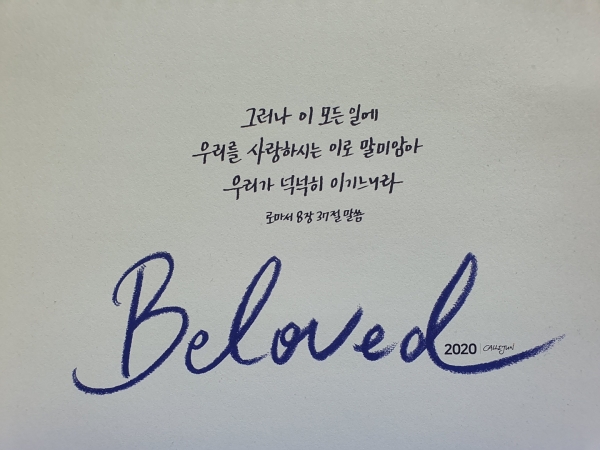 그러나 이 모든 일에
우리를 사랑하시는 이로 말미암아
우리가 넉넉히 이기느니라
로마서 8장 37절 말씀
Beloved
2020 CALLIJUN